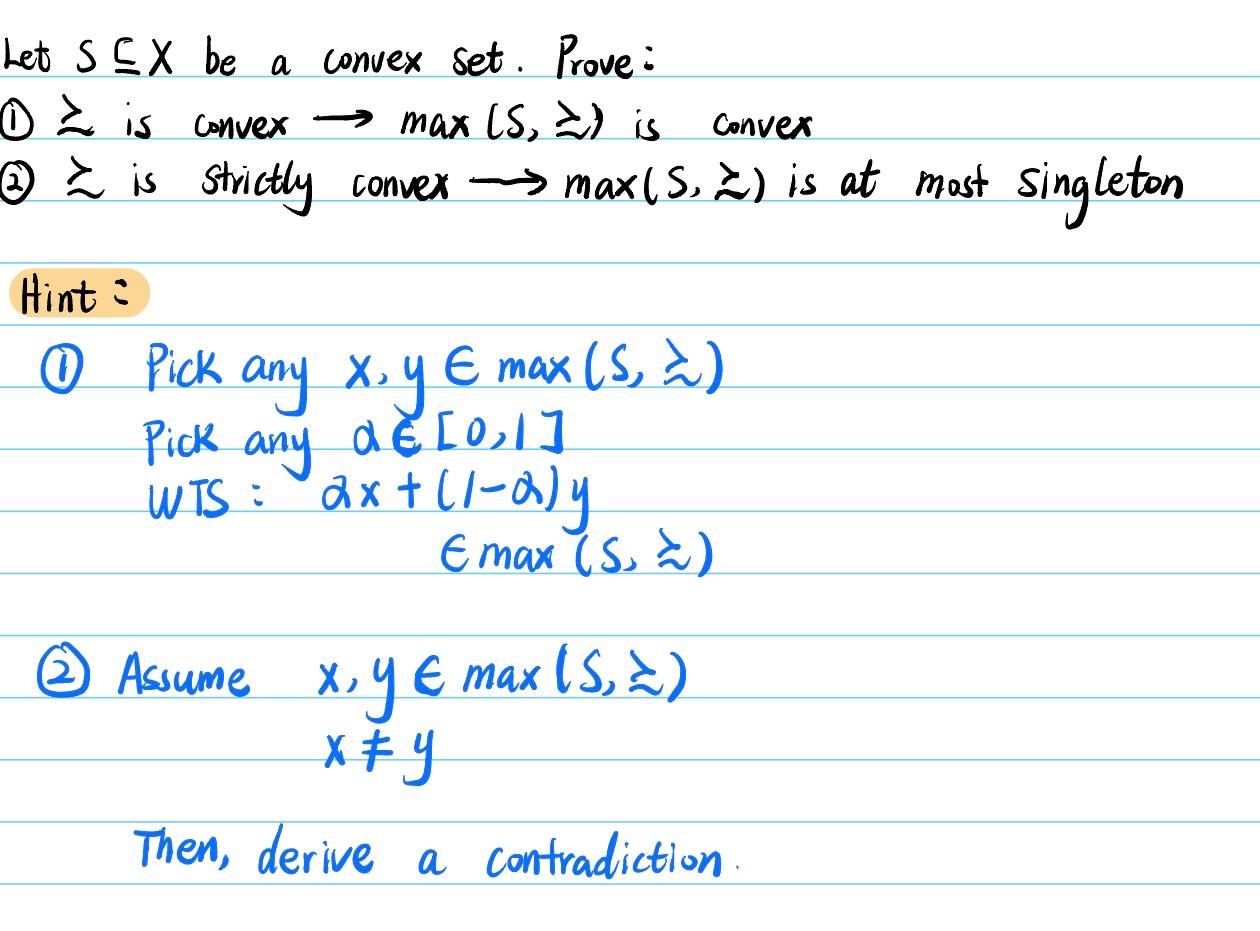 Let S ⊆ X be a convex set. Prove:
① ≿ is convex → max (S, ≿) is convex
② ≿ is strictly convex → max(S, ≿) is at most singleton
Hint:
① Pick any x, y ∈ max (S, ≿)
Pick any α ∈ [0,1]
WTS: αx + (1-α)y
∈ max (S, ≿)
② Assume x, y ∈ max (S, ≿)
x ≠ y
Then, derive a contradiction.